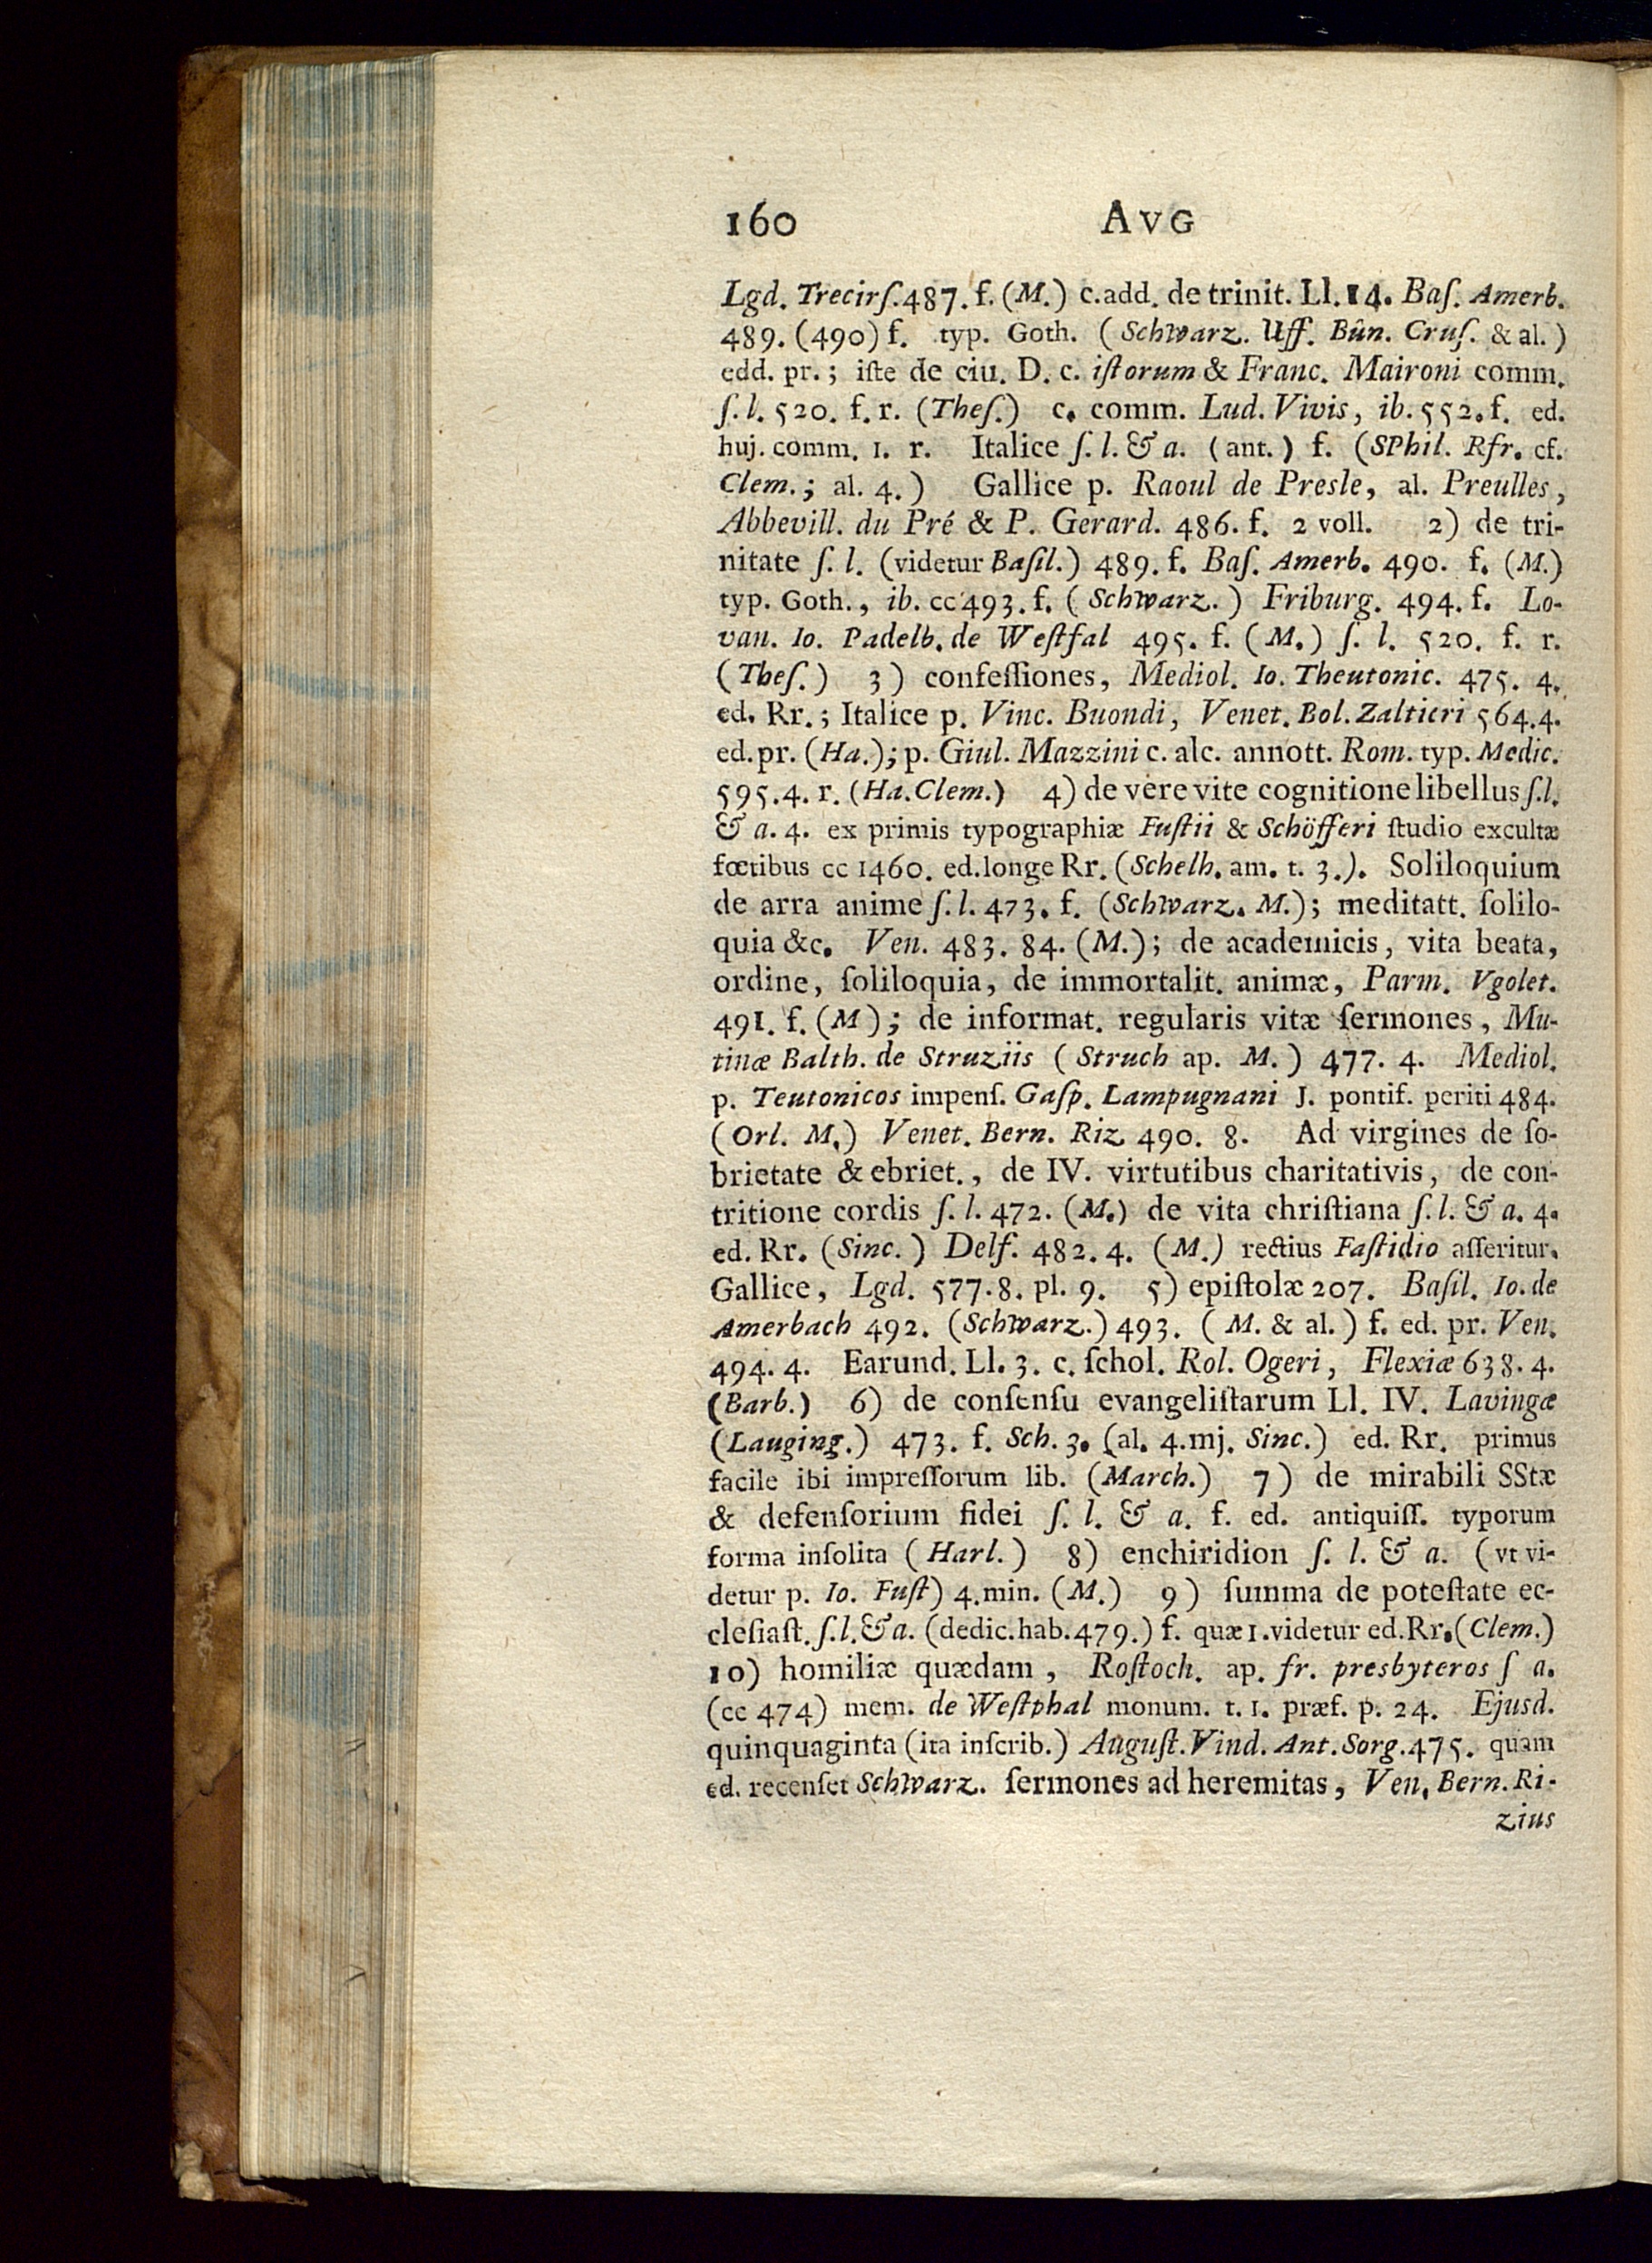 160 AVG
Lgd. Trecirſ. 487. f. (M.) c. add. de trinit. Ll. 14. Baſ. Amerb.
489. (490) f. typ. Goth. (Schwarz. Uff. Bûn. Cruſ. & al.)
edd. pr.; iſte de ciu. D. c. iſtorum & Franc. Maironi comm.
ſ. l. 520. f. r. (Theſ.) c. comm. Lud. Vivis, ib. 552. f. ed.
huj. comm. 1. r. Italice ſ. l. & a. (ant.) f. (SPhil. Rfr. cf.
Clem.; al. 4.) Gallice p. Raoul de Presle, al. Preulles,
Abbevill. du Pré & P. Gerard. 486. f. 2 voll. 2) de tri-
nitate ſ. l. (videtur Baſil.) 489. f. Baſ. Amerb. 490. f. (M.)
typ. Goth., ib. cc 493. f. (Schwarz.) Friburg. 494. f. Lo-
van. Io. Padelb. de Weſtfal 495. f. (M.) ſ. l. 520. f. r.
(Theſ.) 3) confeſſiones, Mediol. Io. Theutonic. 475. 4.
ed. Rr.; Italice p. Vinc. Buondi, Venet. Bol. Zaltieri 564. 4.
ed. pr. (Ha.); p. Giul. Mazzini c. alc. annott. Rom. typ. Medic.
595. 4. r. (Ha. Clem.) 4) de vere vite cognitione libellus ſ. l.
& a. 4. ex primis typographiæ Fuſtii & Schöfferi ſtudio excultæ
fœtibus cc 1460. ed. longe Rr. (Schelh. am. t. 3.). Soliloquium
de arra anime ſ. l. 473. f. (Schwarz. M.); meditatt. ſolilo-
quia &c. Ven. 483. 84. (M.); de academicis, vita beata,
ordine, ſoliloquia, de immortalit. animæ, Parm. Vgolet.
491. f. (M); de informat. regularis vitæ ſermones, Mu-
tinæ Balth. de Struziis (Struch ap. M.) 477. 4. Mediol.
p. Teutonicos impenſ. Gaſp. Lampugnani J. pontif. periti 484.
(Orl. M.) Venet. Bern. Riz 490. 8. Ad virgines de ſo-
brietate & ebriet., de IV. virtutibus charitativis, de con-
tritione cordis ſ. l. 472. (M.) de vita chriſtiana ſ. l. & a. 4.
ed. Rr. (Sinc.) Delf. 482. 4. (M.) rectius Faſtidio aſſeritur.
Gallice, Lgd. 577. 8. pl. 9. 5) epiſtolæ 207. Baſil. Io. de
Amerbach 492. (Schwarz.) 493. (M. & al.) f. ed. pr. Ven.
494. 4. Earund. Ll. 3. c. ſchol. Rol. Ogeri, Flexiæ 638. 4.
(Barb.) 6) de conſenſu evangeliſtarum Ll. IV. Lavingæ
(Lauging.) 473. f. Sch. 3. (al. 4. mj. Sinc.) ed. Rr. primus
facile ibi impreſſorum lib. (March.) 7) de mirabili SStæ
& defenſorium fidei ſ. l. & a. f. ed. antiquiſſ. typorum
forma inſolita (Harl.) 8) enchiridion ſ. l. & a. (vt vi-
detur p. Io. Fuſt) 4. min. (M.) 9) ſumma de poteſtate ec-
cleſiaſt. ſ. l. & a. (dedic. hab. 479.) f. quæ 1. videtur ed. Rr. (Clem.)
10) homiliæ quædam, Roſtoch. ap. fr. presbyteros ſ a.
(cc 474) mem. de Weſtphal monum. t. 1. præf. p. 24. Ejusd.
quinquaginta (ita inſcrib.) Auguſt. Vind. Ant. Sorg. 475. quam
ed. recenſet Schwarz. ſermones ad heremitas, Ven. Bern. Ri-
zius